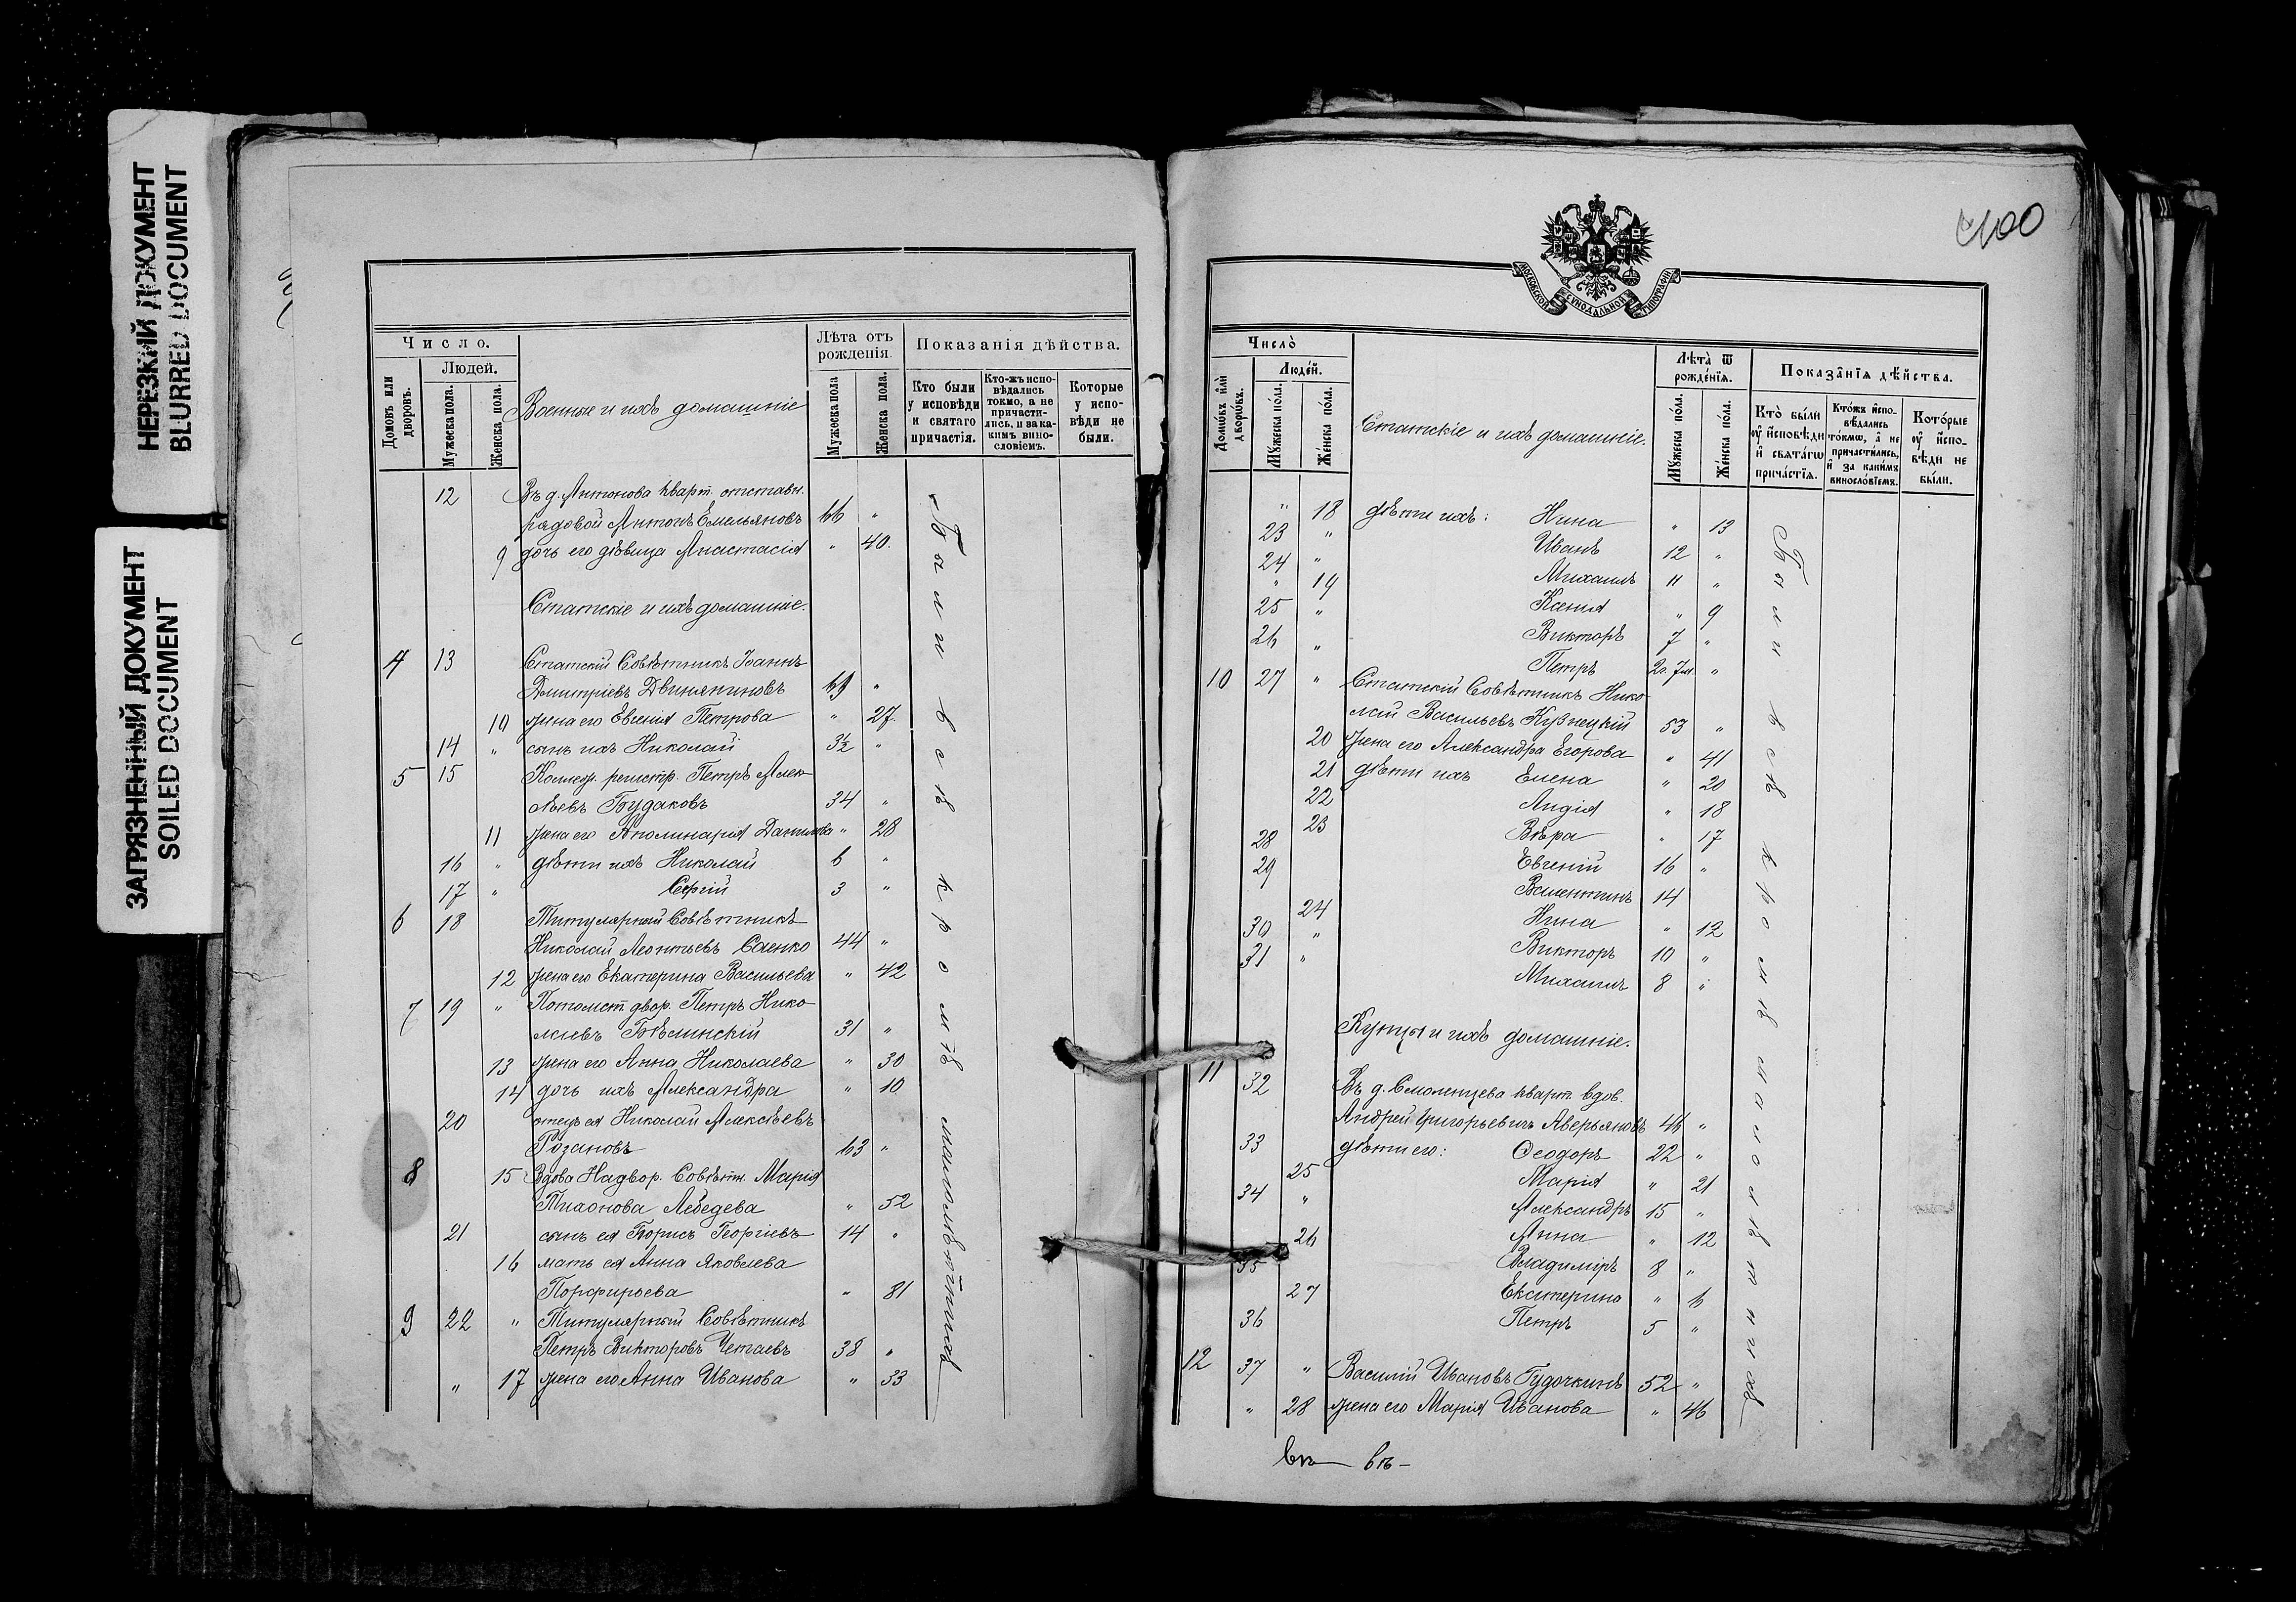 НЕРЕЗКИЙ ДОКУМЕНТ
BLURRED DOCUMENT
ЗАГРЯЗНЕННЫЙ ДОКУМЕНТ
SOILED DOCUMENT
Число.
Людей.
Домовъ или дворовъ.
Мужеска пола.
Женска пола.
Военные и ихъ домашніе
Лѣта отъ рожденія.
Мужеска пола
Женска пола.
Показанія дѣйства.
Кто были у исповѣди и святаго причастія.
Кто-жъ исповѣдались токмо, а не причастились, и за какимъ винословіемъ.
Которые у исповѣди не были.
12 Въ д. Антонова кварт. отставн.
рядовой Антонъ Емельяновъ 66 "
9 дочь его дѣвица Анастасія " 40.
Статскіе и ихъ домашніе.
4 13 Статскій Совѣтникъ Іоаннъ
Дмитріевъ Двиняниновъ 69 "
10 жена его Евгенія Петрова " 27.
14 " сынъ ихъ Николай 3½ "
5 15 Коллеж. регистр. Петръ Алек-
сѣевъ Будаковъ 34 "
11 жена его Аполинарія Данилова " 28
16 " дѣти ихъ Николай 6 "
17 " Сергій 3 "
6 18 Титулярный Совѣтникъ
Николай Леонтьевъ Саенко 44 "
12 жена его Екатерина Васильева " 42
7 19 " Потомст. двор. Петръ Нико-
лаевъ Бѣлинскій 31 "
13 жена его Анна Николаева " 30
14 дочь ихъ Александра " 10
20 отецъ ея Николай Алексѣевъ
Розановъ 63 "
8 15 Вдова Надвор. Совѣтн. Марія
Тихонова Лебедева " 52
21 сынъ ея Борисъ Георгіевъ 14 "
16 мать ея Анна Яковлева
Порфирьева " 81
9 22 " Титулярный Совѣтникъ
Петръ Викторовъ Четаевъ 38 "
" 17 жена его Анна Иванова " 33
Были всѣ кромѣ малолѣтнихъ
400
МОСКОВСКОЙ СѴНОДАЛЬНОЙ ТИПОГРАФІИ
Число̀
Люде́й.
Домѡ́въ и҆лѝ дворѡ́въ.
Мꙋ́жеска по́ла.
Же́нска по́ла.
Статскіе и ихъ домашніе.
Лѣ́та ѿ рожде́нїѧ.
Мꙋ́жеска по́ла.
Же́нска по́ла.
Показа̑нїѧ дѣ́йства.
Кто̀ бы́ли ᲂу҆ и҆сповѣ́ди и҆ свѧта́гѡ прича́стїѧ.
Кто́жъ и҆сповѣ́дались то́кмѡ, а҆ не причасти́лись, и҆ за каки́мъ винословіемъ.
Кото́рые ᲂу҆ и҆сповѣ́ди не бы́ли.
" 18 дѣти ихъ: Нина " 13
23 " Иванъ 12 "
24 " Михаилъ 11 "
" 19 Ксенія " 9
25 " Викторъ 7 "
26 " Петръ 2г. 7м. "
10 27 " Статскій Совѣтникъ Нико-
лай Васильевъ Кузнецкій 53 "
20 жена его Александра Егорова " 41
21 дѣти ихъ Елена " 20
22 Лидія " 18
23 Вѣра " 17
28 Евгеній 16 "
29 Валентинъ 14
24 Нина " 12
30 " Викторъ 10 "
31 " Михаилъ 8 "
Купцы и ихъ домашніе.
11 32 Въ д. Смолянцева кварт. вдов.
Андрей Григорьевичъ Аверьяновъ 46 "
33 дѣти его: Ѳеодоръ 22 "
25 Марія " 21
34 " Александръ 15 "
26 Анна " 12
35 Владиміръ 8 "
27 Екатерина " 6
36 Петръ 5 "
12 37 " Василій Ивановъ Гудочкинъ 52 "
" 28 жена его Марія Иванова " 46
Были всѣ кромѣ малолѣтнихъ